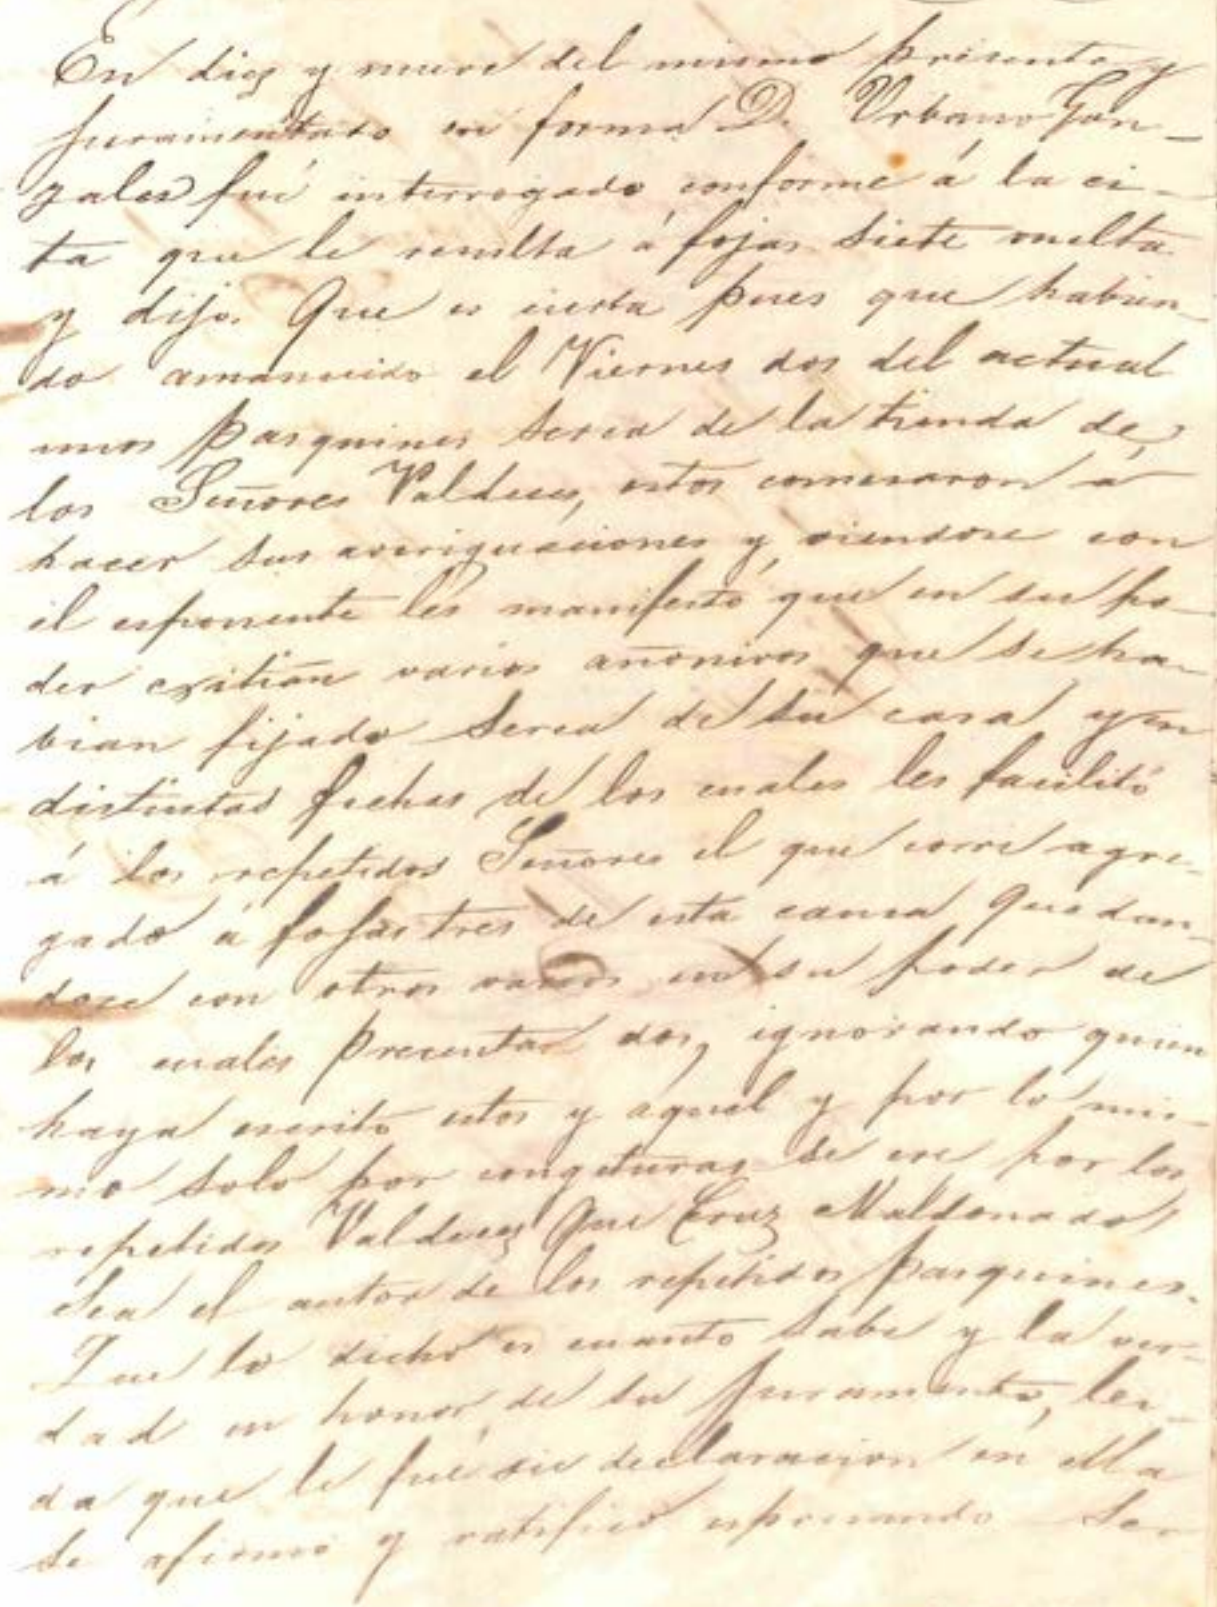 En diez y nueve del mismo presente y
juramentado en forma D. Urbano Gon-
zales fué interrogado conforme á la ci-
ta que le resulta á fojas siete vuelta
y dijo. Que es cierta pues que habien-
do amanecido el Viernes dos del actual
unos pasquines serca de la tienda de
los Señores Valdeses, estos comensaron á
hacer sus averiguaciones y viendose con
el esponente les manifestó que en su po-
der existian varios anonimos que se ha-
bian fijado serca de su casa y en
distintas fechas de los cuales les facilitó
á los repetidos Señores el que corre agre-
gado á fojas tres de esta causa quedan-
dose con otros varios en su poder de
los cuales presenta dos, ignorando quien
haya escrito estos y aquel y por lo mis-
mo solo por congeturas se cre por los
repetidos Valdeses que Cruz Maldonado
sea el autor de los repetidos pasquines.
Que lo dicho es cuanto sabe y la ver-
dad en honor de su juramento, lei-
da que le fué su declaracion en ella
se afirmó y ratificó espresando ser